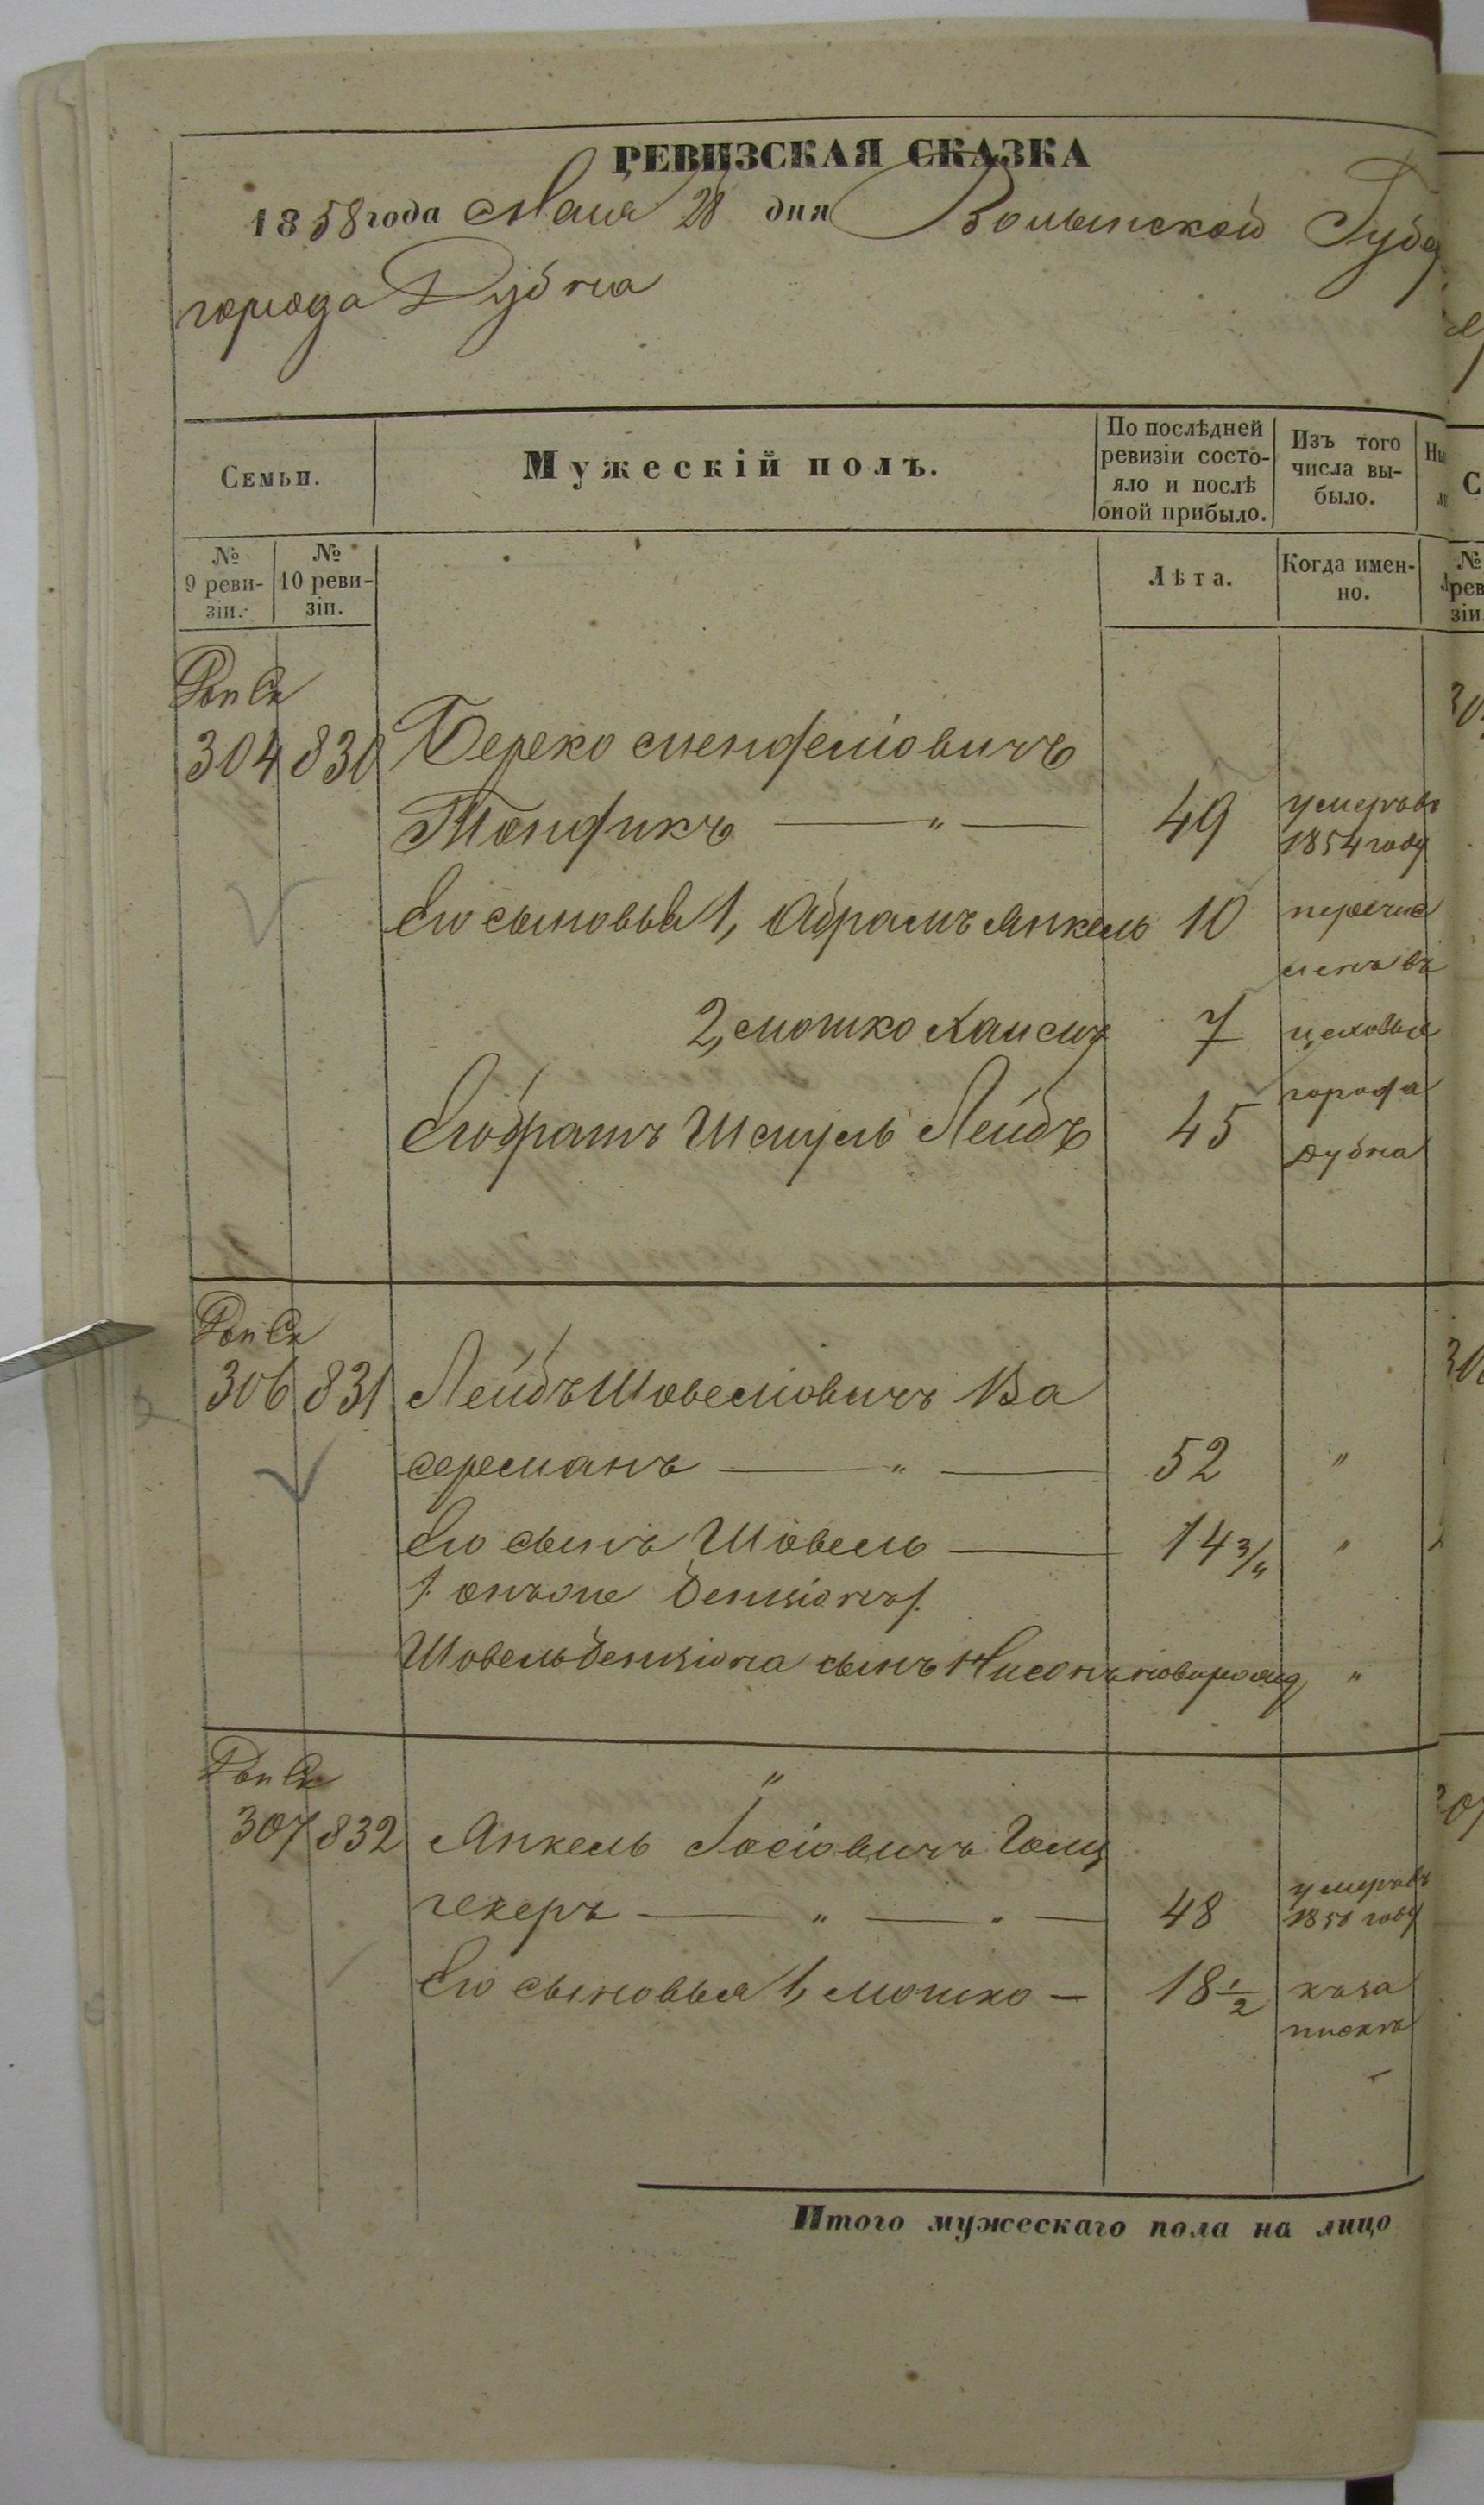 РЕВИЗСКАЯ СКАЗКА
1858 года Мая 28 дня Волынской Губе
города Дубна
Семьи.
Мужескій полъ.
По послѣдней ревизіи состо-
яло и послѣ оной прибыло.
Изъ того числа вы-
было.
№ 9 реви-
зіи.
№ 10 реви-
зіи.
Лѣта.
Когда имен-
но.
304 830 Берко Менделіовичъ
Тондикъ — " — 49 умеръ въ
1854 году
Его сыновья 1, Абрамъ Янкель 10 перечис
ленъ въ
2, Мошко Хаимъ 7 цеховые
города
Его братъ Шмуль Лейбъ 45 Дубна
306 831 Лейбъ Шовеліовичъ Ва
серманъ — " — 52 "
Его сынъ Шовель — 14 3/4 "
/: онъ же Бенціонъ :/
Шовель Бенціона сынъ Нисонъ новорожд "
"
307 832 Янкель Іосіовичъ Голц
гекеръ — " — " — 48 умеръ въ
1850 году
Его сыновья 1, Мошко — 18 1/2
Итого мужескаго пола на лицо